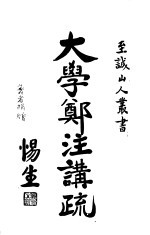 至誠山人叢書
大學鄭注講疏
惕生